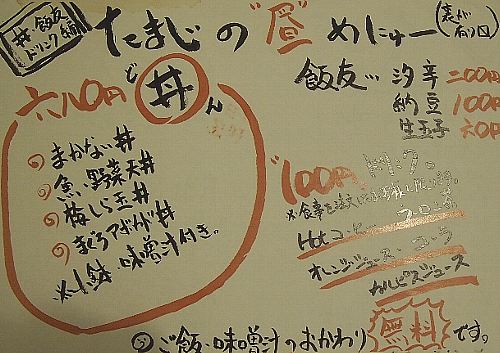 丼・飯友
ドリンク編
たまじの"昼"めにゅー
六八〇円
どん
丼
まかない丼
魚い野菜天丼
梅しらす丼
まぐろアボカド丼
※小鉢・味噌汁付き。
飯友… 汐辛 二〇〇円
納豆 一〇〇円
生玉子 六〇円
100円
ドリンク。
Hotコーヒー
オレンジジュース・コーラ
カルピスジュース
ご飯・味噌汁のおかわり
無料
です。